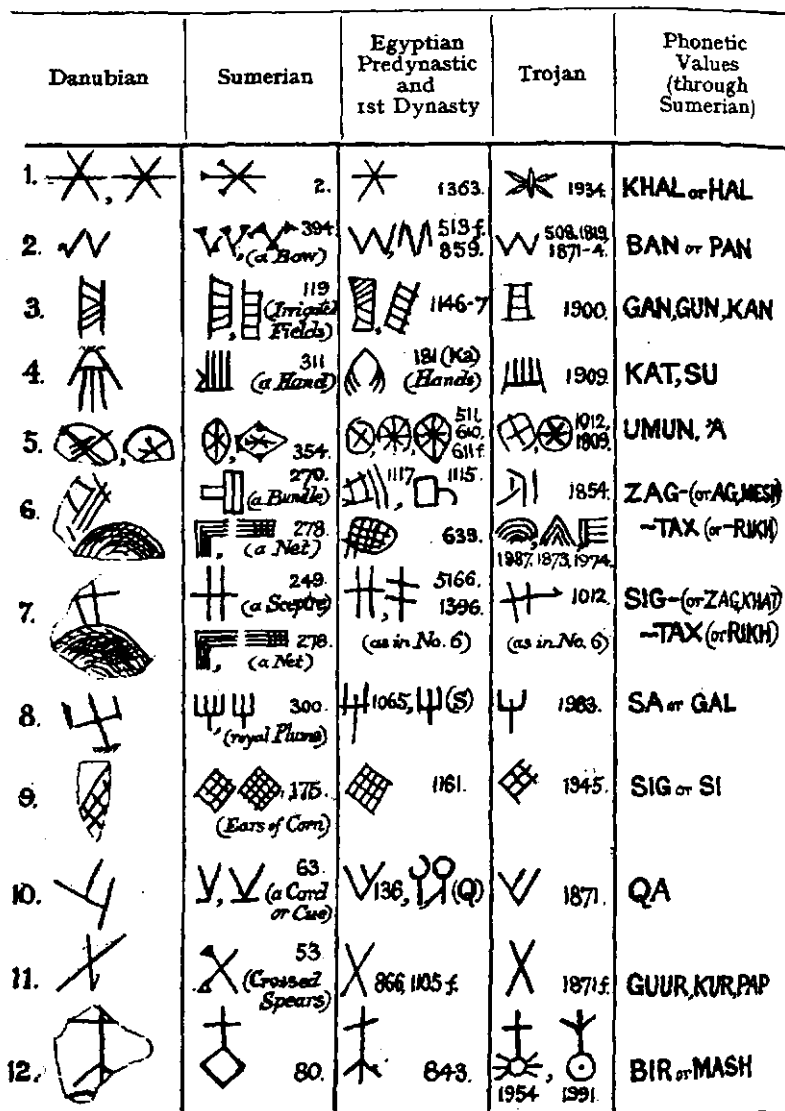 Danubian Sumerian Egyptian Predynastic and 1st Dynasty Trojan Phonetic Values (through Sumerian)
1. , 2. 1363. 1934. KHAL or HAL
2. , 394 (a Bow) , 513 f. 859. 508, 1819, 1871-4. BAN or PAN
3. , 119 (Irrigated Fields) , 1146-7 1900. GAN, GUN, KAN
4. 311 (a Hand) 181 (Ka) (Hands) 1909. KAT, SU
5. , , 354. , , 511, 610, 611 f. , 1012, 1809. UMUN, 'A
6. 270. (a Bundle) 1117, 1115. 1854. ZAG-(or AG, MESH)
, 278. (a Net) 639. 1987, 1873, 1974. -TAX (or -RIKH)
7. 249. (a Sceptre) , 5166. 1396. 1012. SIG-(or ZAG, KHAT)
, 278. (a Net) (as in No. 6) (as in No. 6) -TAX (or RIKH)
8. , 300. (royal Plume) 1065, (S) 1983. SA or GAL
9. , 175. (Ears of Corn) 1161. 1945. SIG or SI
10. , 63. (a Cord or Cue) 136, (Q) 1871. QA
11. 53. (Crossed Spears) 866, 1105 f. 1871 f. GUUR, KUR, PAP
12. 80. 843. 1954 , 1991. BIR or MASH